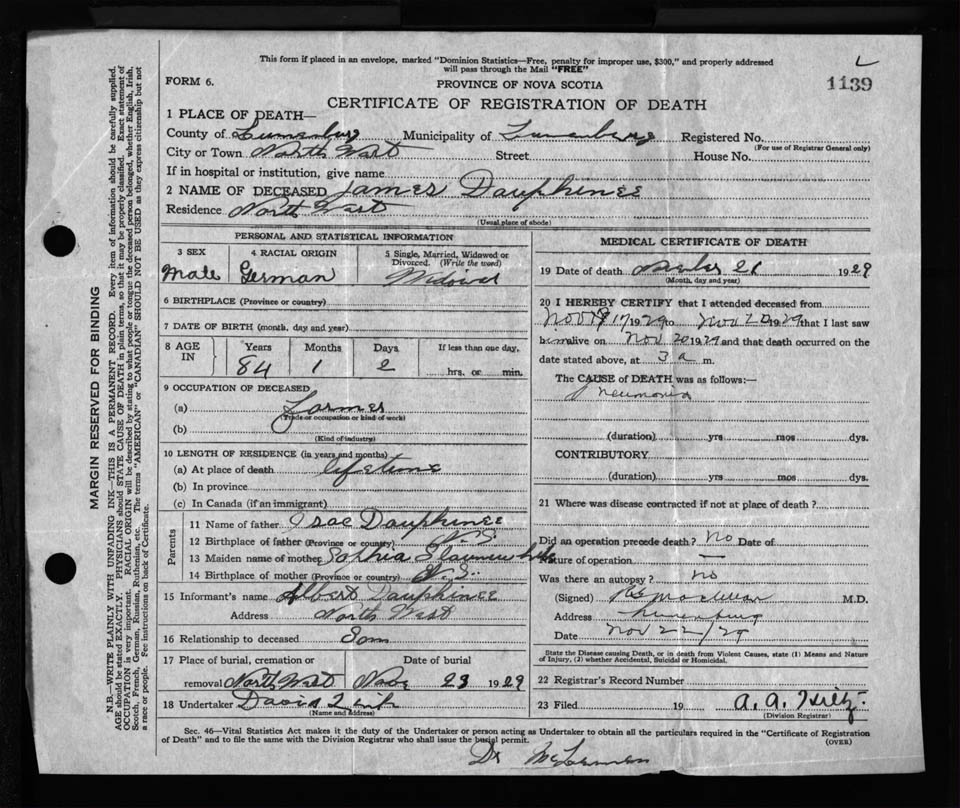 This form if placed in an envelope, marked "Dominion Statistics—Free, penalty for improper use, $300," and properly addressed
will pass through the Mail "FREE"
FORM 6.
PROVINCE OF NOVA SCOTIA
1139
CERTIFICATE OF REGISTRATION OF DEATH
1 PLACE OF DEATH—
County of Lunenburg Municipality of Lunenburg Registered No.
(For use of Registrar General only)
City or Town North West Street House No.
If in hospital or institution, give name
2 NAME OF DECEASED James Dauphinee
Residence North West
(Usual place of abode)
PERSONAL AND STATISTICAL INFORMATION
3 SEX
Male
4 RACIAL ORIGIN
German
5 Single, Married, Widowed or Divorced. (Write the word)
Widower
6 BIRTHPLACE (Province or country)
7 DATE OF BIRTH (month, day and year)
8 AGE IN Years Months Days If less than one day,
84 1 2 hrs. or min.
9 OCCUPATION OF DECEASED
(a) Farmer
(Trade or occupation or kind of work)
(b)
(Kind of industry)
10 LENGTH OF RESIDENCE (in years and months)
(a) At place of death lifetime
(b) In province
(c) In Canada (if an immigrant)
Parents
11 Name of father Isac Dauphinee
12 Birthplace of father (Province or country) N.S.
13 Maiden name of mother Sophia
14 Birthplace of mother (Province or country) N.S.
15 Informant's name Albert Dauphinee
Address North West
16 Relationship to deceased Son
17 Place of burial, cremation or removal Date of burial
North West Nov 23 1929
18 Undertaker David
(Name and address)
MEDICAL CERTIFICATE OF DEATH
19 Date of death 21 1929
(Month, day and year)
20 I HEREBY CERTIFY that I attended deceased from
Nov 17 1929 to Nov 20 1929 that I last saw
him alive on Nov 20 1929 and that death occurred on the
date stated above, at 3 a m.
The CAUSE of DEATH was as follows:—
Pneumonia
(duration) yrs mos dys.
CONTRIBUTORY
(duration) yrs mos dys.
21 Where was disease contracted if not at place of death?
Did an operation precede death? no Date of
Nature of operation —
Was there an autopsy? no
(Signed) M.D.
Address Lunenburg
Date Nov 22/29
State the Disease causing Death, or in death from Violent Causes, state (1) Means and Nature
of Injury, (2) whether Accidental, Suicidal or Homicidal.
22 Registrar's Record Number
23 Filed 19 A. A.
(Division Registrar)
Sec. 46—Vital Statistics Act makes it the duty of the Undertaker or person acting as Undertaker to obtain all the particulars required in the "Certificate of Registration
of Death" and to file the same with the Division Registrar who shall issue the burial permit.
(OVER)
Dr
MARGIN RESERVED FOR BINDING
N.B.—WRITE PLAINLY WITH UNFADING INK—THIS IS A PERMANENT RECORD. Every item of information should be carefully supplied.
AGE should be stated EXACTLY. PHYSICIANS should STATE CAUSE OF DEATH in plain terms, so that it may be properly classified. Exact statement of
OCCUPATION is very important. RACIAL ORIGIN will be described by stating to what people or tongue the deceased person belonged, whether English, Irish,
Scotch, French, German, Russian, Ruthenian, etc. The terms "AMERICAN" or "CANADIAN" SHOULD NOT BE USED as they express citizenship but not
a race or people. Fee instructions on back of Certificate.